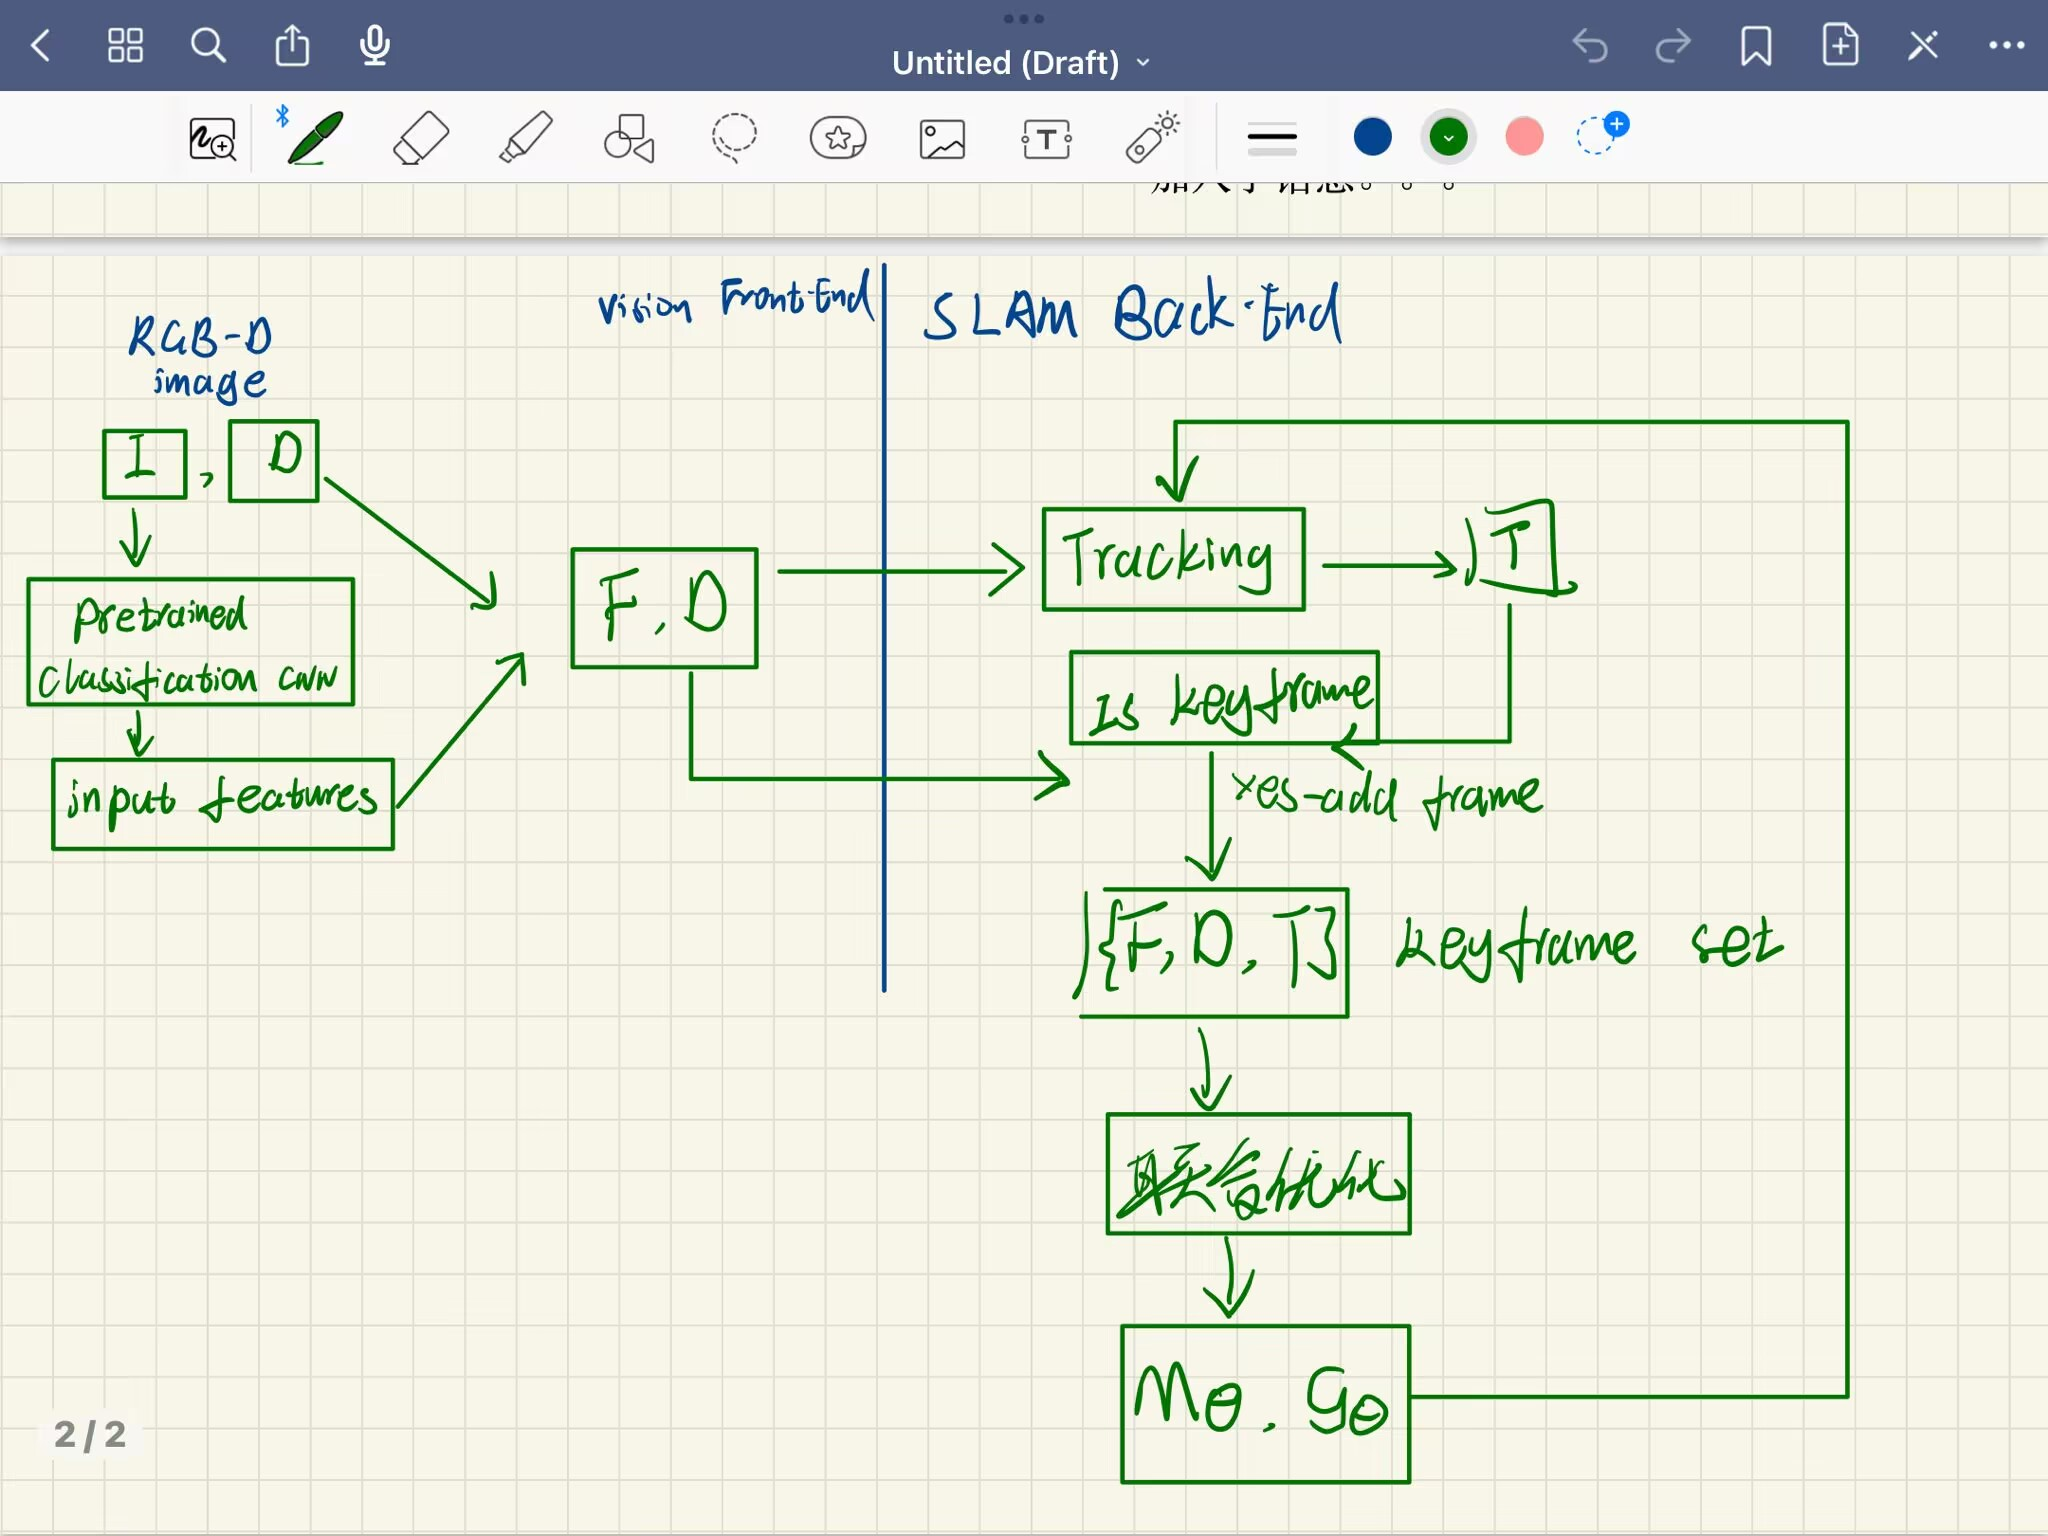 Untitled (Draft)
RGB-D
image
Vision Front-End
SLAM Back-End
I, D
Pretrained
classification CNN
input features
F, D
Tracking
T
Is keyframe
Yes-add frame
{F, D, T}
keyframe set
联合优化
Mθ, Gθ
2/2